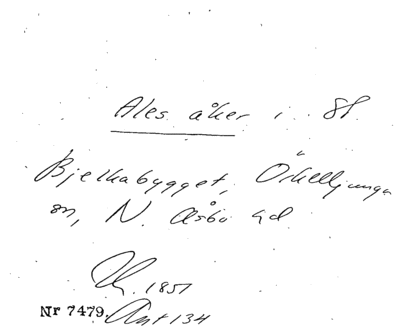 Ales åker i 8/
Bjelkabygget, Örkelljunga
sn, N. Åsbo hd.
1851
Nr 7479. Ant 134